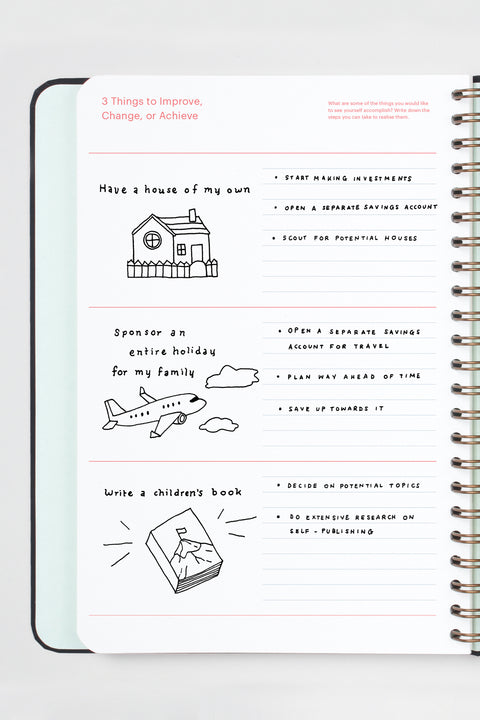 3 Things to Improve,
Change, or Achieve
What are some of the things you would like
to see yourself accomplish? Write down the
steps you can take to realise them.
Have a house of my own
• START MAKING INVESTMENTS
• OPEN A SEPARATE SAVINGS ACCOUNT
• SCOUT FOR POTENTIAL HOUSES
Sponsor an
entire holiday
for my family
• OPEN A SEPARATE SAVINGS
ACCOUNT FOR TRAVEL
• PLAN WAY AHEAD OF TIME
• SAVE UP TOWARDS IT
Write a children's book
• DECIDE ON POTENTIAL TOPICS
• DO EXTENSIVE RESEARCH ON
SELF - PUBLISHING